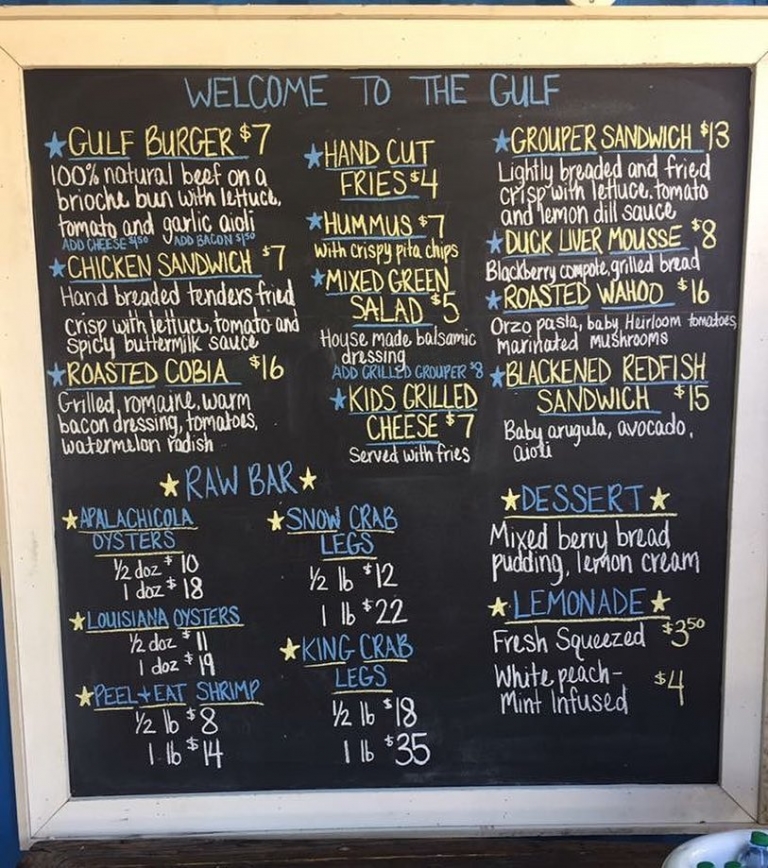 WELCOME TO THE GULF
GULF BURGER $7
100% natural beef on a
brioche bun with lettuce,
tomato and garlic aioli
ADD CHEESE $1.50 ADD BACON $1.50
CHICKEN SANDWICH $7
Hand breaded tenders fried
crisp with lettuce, tomato and
spicy buttermilk sauce
ROASTED COBIA $16
Grilled, romaine, warm
bacon dressing, tomatoes,
watermelon radish
HAND CUT
FRIES $4
HUMMUS $7
with crispy pita chips
MIXED GREEN
SALAD $5
House made balsamic
dressing
ADD GRILLED GROUPER $8
KIDS GRILLED
CHEESE $7
Served with fries
GROUPER SANDWICH $13
Lightly breaded and fried
crisp with lettuce, tomato
and lemon dill sauce
DUCK LIVER MOUSSE $8
Blackberry compote, grilled bread
ROASTED WAHOO $16
Orzo pasta, baby Heirloom tomatoes,
marinated mushrooms
BLACKENED REDFISH
SANDWICH $15
Baby arugula, avocado,
aioli
RAW BAR
APALACHICOLA
OYSTERS
1/2 doz $10
1 doz $18
LOUISIANA OYSTERS
1/2 doz $11
1 doz $19
PEEL + EAT SHRIMP
1/2 lb $8
1 lb $14
SNOW CRAB
LEGS
1/2 lb $12
1 lb $22
KING CRAB
LEGS
1/2 lb $18
1 lb $35
DESSERT
Mixed berry bread
pudding, lemon cream
LEMONADE
Fresh Squeezed $3.50
White peach-
Mint Infused $4